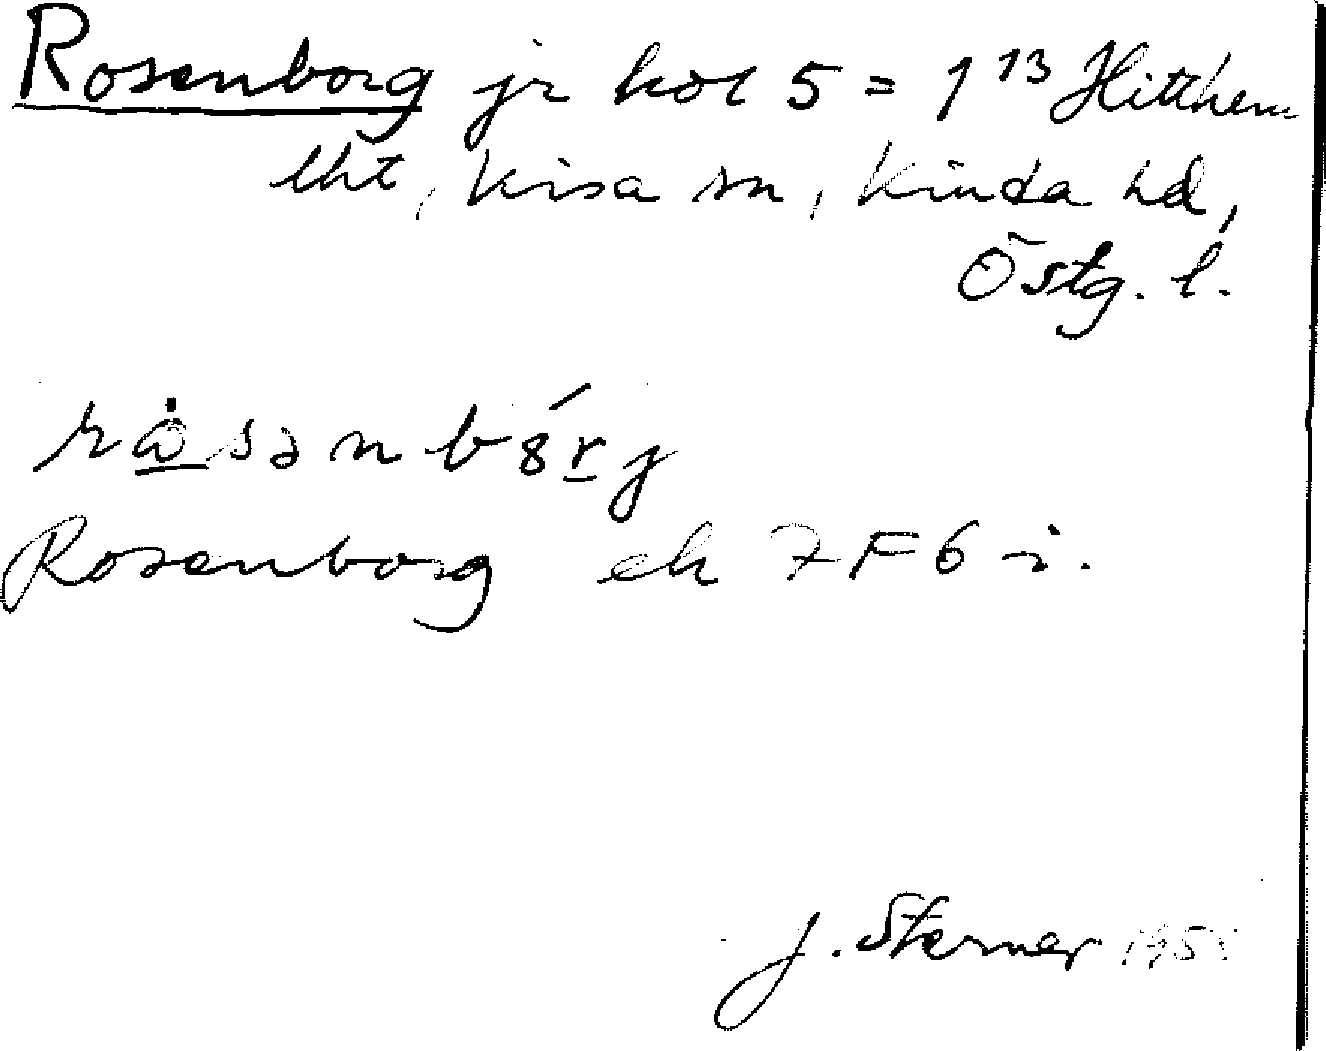 Rosenborg jr kol 5 = 1¹³ Hitthem
lht, Kisa sn, Kinda hd,
Östg. l.
rå̲sənbór̲g
Rosenborg ek 7F6i.
J. Sterner